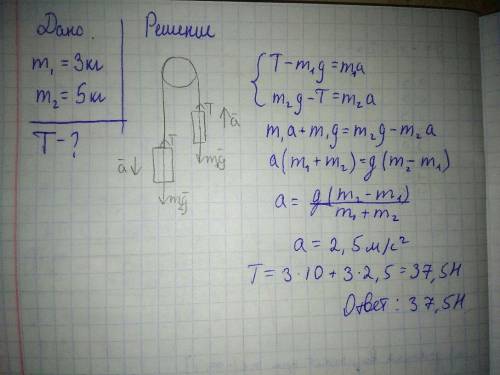 Дано. Решение
m₁ = 3кг
m₂ = 5кг
T - ?
T
T
ā
ā
mḡ
mḡ
T - m₁g = m₁a
m₂g - T = m₂a
m₁a + m₁g = m₂g - m₂a
a(m₁ + m₂) = g(m₂ - m₁)
a = g(m₂ - m₁) / m₁ + m₂
a = 2,5 м/с²
T = 3·10 + 3·2,5 = 37,5Н
Ответ: 37,5Н